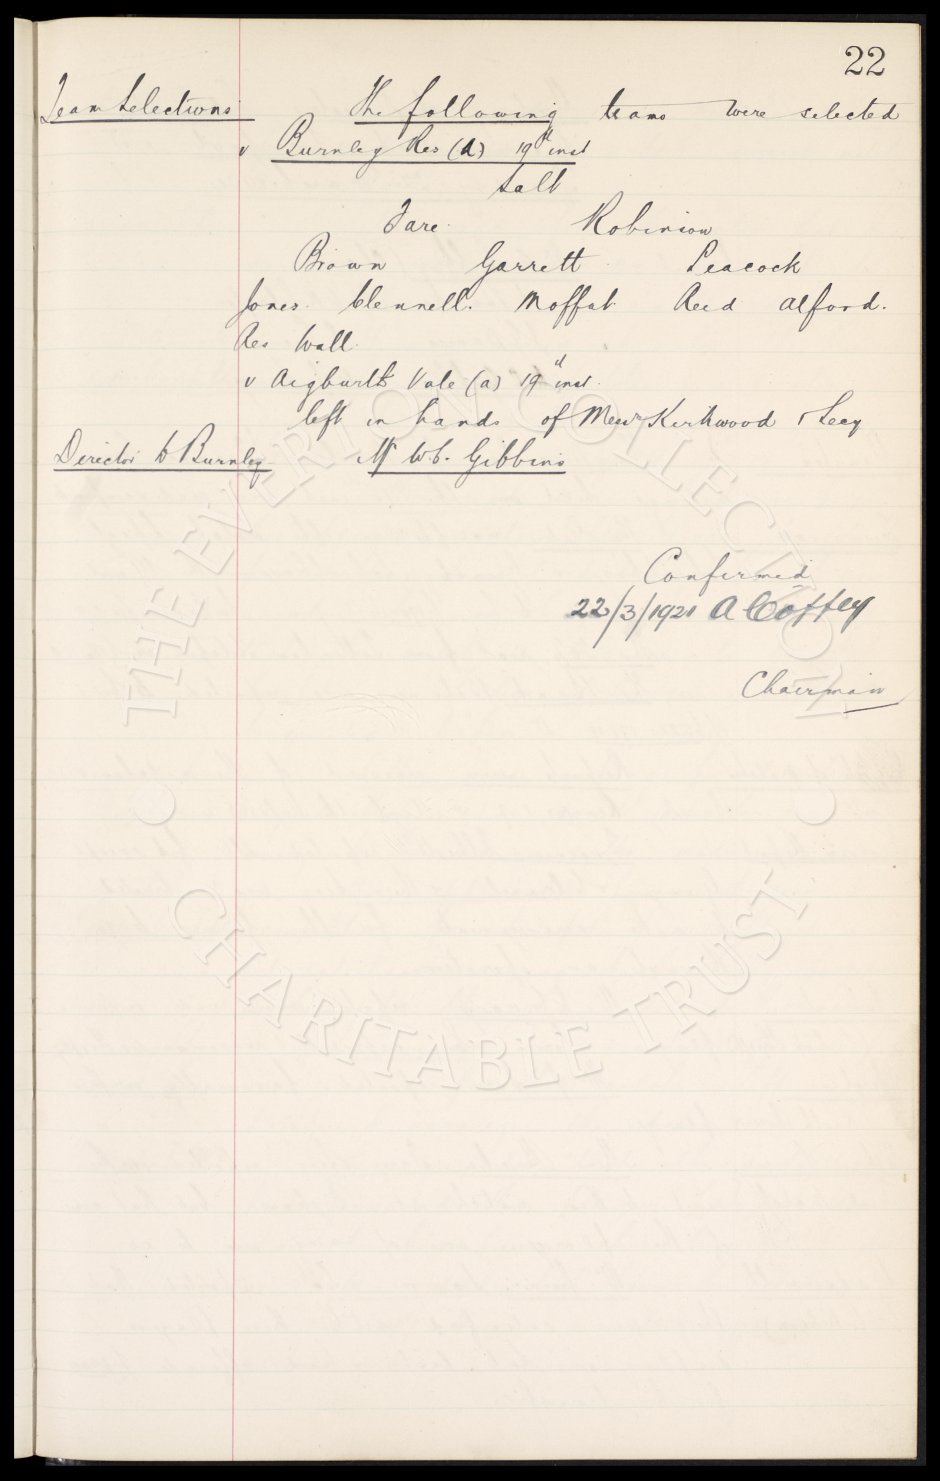 22
Team Selections The following teams were selected
v Burnley Res (A) 19th inst
Salt
Fare. Robinson
Brown Garrett. Peacock
Jones. Clennell. Moffat Reed Alford.
Res Wall.
v Aigburth Vale (a) 19th inst.
left in hands of Messrs Kirkwood &
Director to Burnley Mr W.C. Gibbins
Confirmed
22/3/1921 A Coffey
Chairman
THE EVERTON COLLECTION
CHARITABLE TRUST